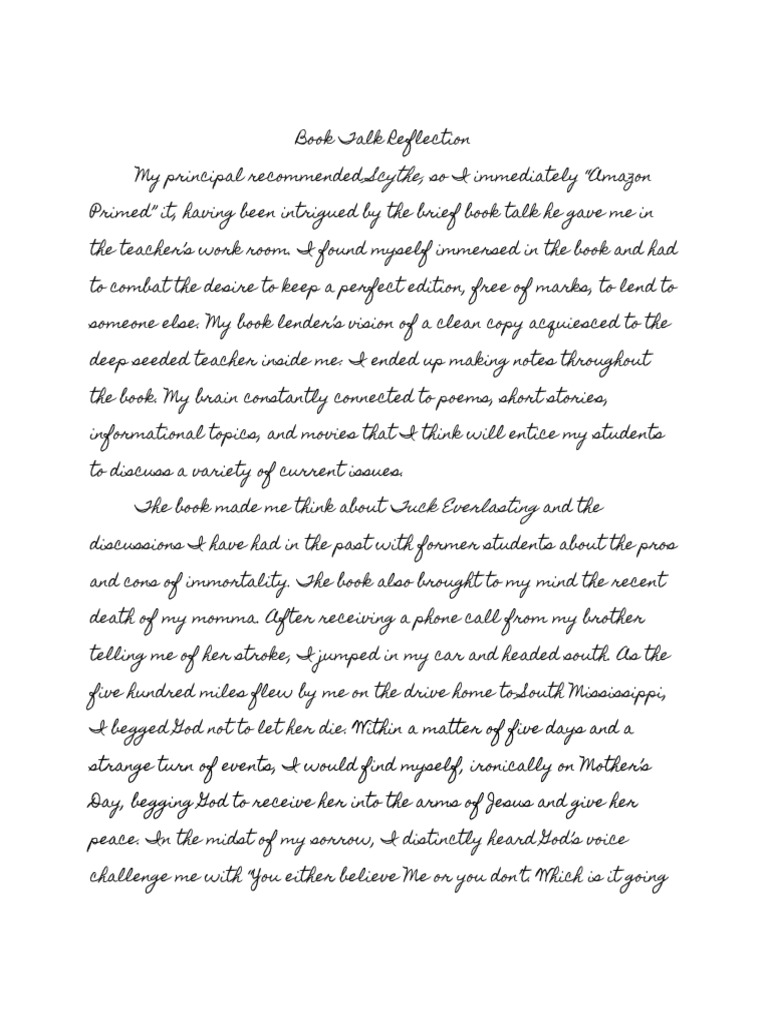 Book Talk Reflection
My principal recommended Scythe, so I immediately "Amazon
Primed" it, having been intrigued by the brief book talk he gave me in
the teacher's work room. I found myself immersed in the book and had
to combat the desire to keep a perfect edition, free of marks, to lend to
someone else. My book lender's vision of a clean copy acquiesced to the
deep seeded teacher inside me. I ended up making notes throughout
the book. My brain constantly connected to poems, short stories,
informational topics, and movies that I think will entice my students
to discuss a variety of current issues.
The book made me think about Tuck Everlasting and the
discussions I have had in the past with former students about the pros
and cons of immortality. The book also brought to my mind the recent
death of my momma. After receiving a phone call from my brother
telling me of her stroke, I jumped in my car and headed south. As the
five hundred miles flew by me on the drive home to South Mississippi,
I begged God not to let her die. Within a matter of five days and a
strange turn of events, I would find myself, ironically on Mother's
Day, begging God to receive her into the arms of Jesus and give her
peace. In the midst of my sorrow, I distinctly heard God's voice
challenge me with "You either believe Me or you don't. Which is it going